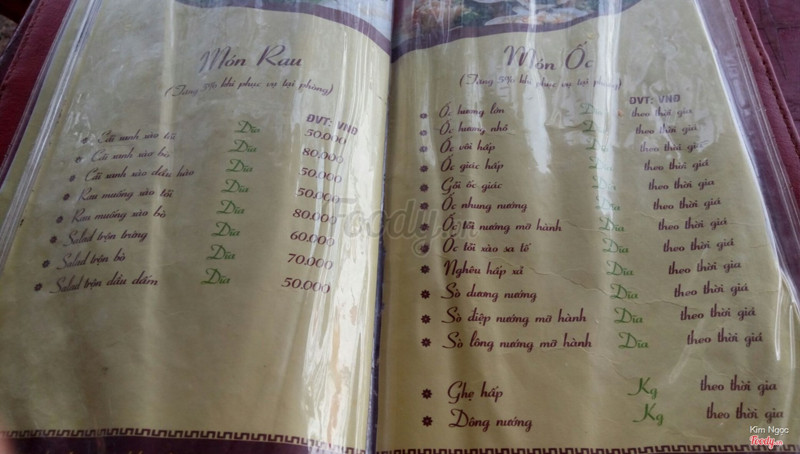 Món Rau
(Tăng 5% khi phục vụ tại phòng)
ĐVT: VNĐ
Cải xanh xào tỏi Dĩa 50.000
Cải xanh xào bò Dĩa 80.000
Cải xanh xào dầu hào Dĩa 50.000
Rau muống xào tỏi Dĩa 50.000
Rau muống xào bò Dĩa 80.000
Salad trộn trứng Dĩa 60.000
Salad trộn bò Dĩa 70.000
Salad trộn dầu dấm Dĩa 50.000
Món Ốc
(Tăng 5% khi phục vụ tại phòng)
ĐVT: VNĐ
Ốc hương lớn theo thời giá
Ốc hương nhỏ Dĩa theo thời giá
Ốc vôi hấp Dĩa theo thời giá
Ốc giác hấp Dĩa theo thời giá
Gỏi ốc giác Dĩa theo thời giá
Ốc nhung nướng Dĩa theo thời giá
Ốc tỏi nướng mỡ hành Dĩa theo thời giá
Ốc tỏi xào sa tế Dĩa theo thời giá
Nghêu hấp xả Dĩa theo thời gia
Sò dương nướng Dĩa theo thời giá
Sò điệp nướng mỡ hành Dĩa theo thời giá
Sò lông nướng mỡ hành Dĩa theo thời giá
Ghẹ hấp Kg theo thời gia
Dông nướng Kg theo thời gia
Foody.vn
Kim Ngọc
Foody.vn